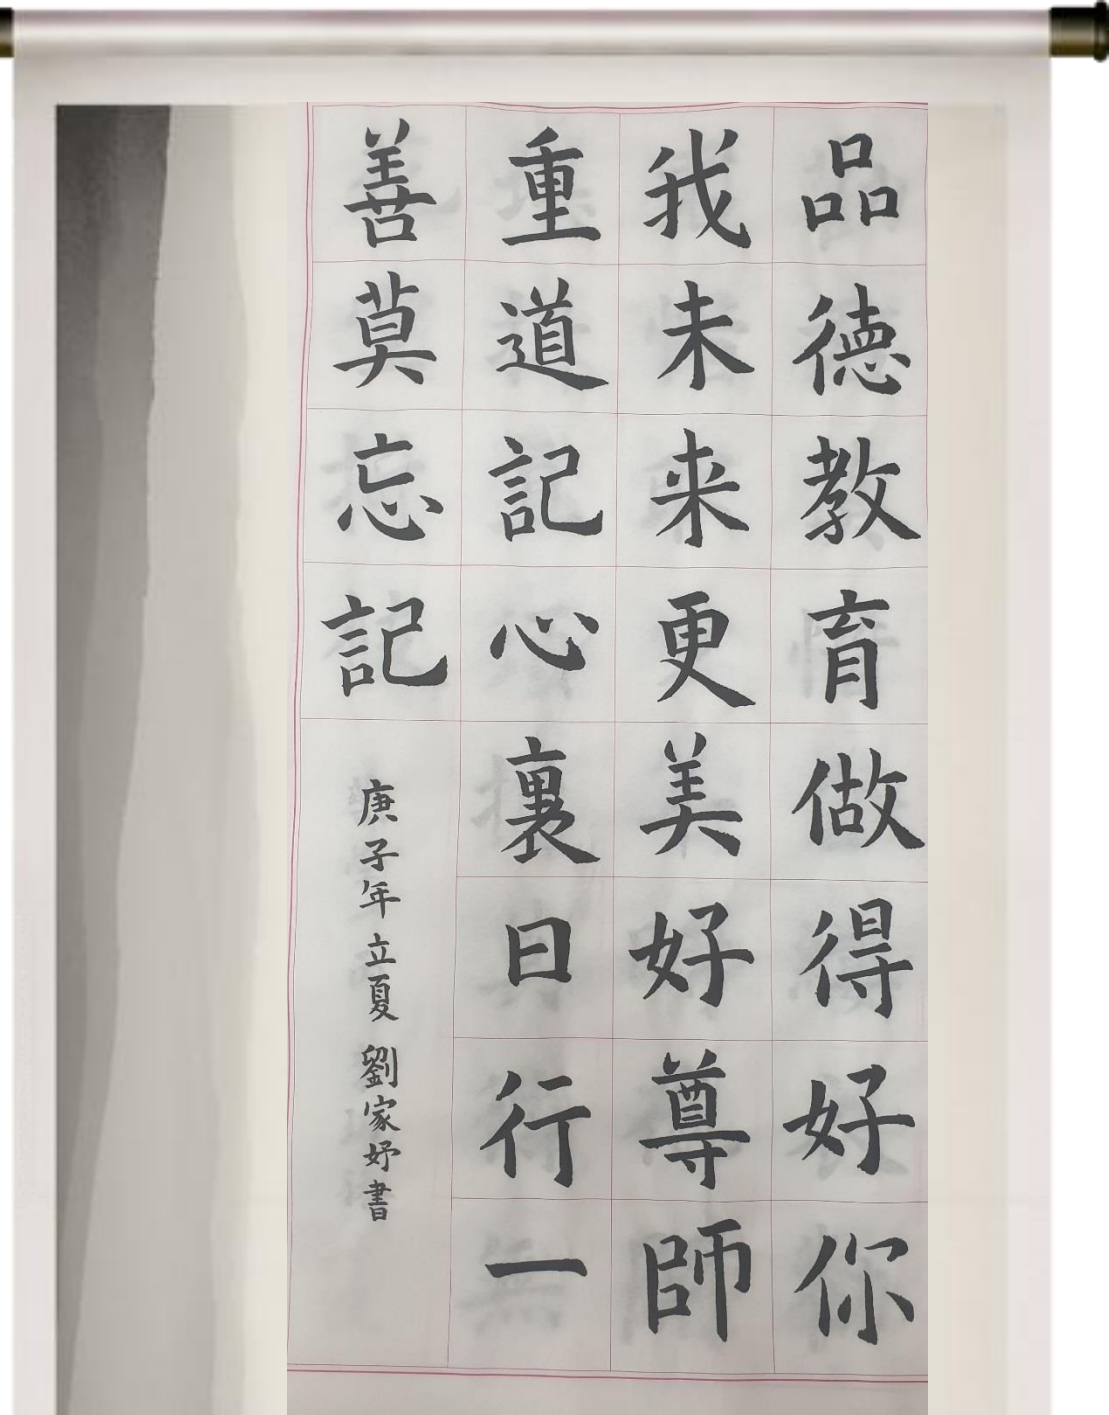 品德教育做得好你
我未来更美好尊師
重道記心裏日行一
善莫忘記
庚子年立夏 劉家妤書